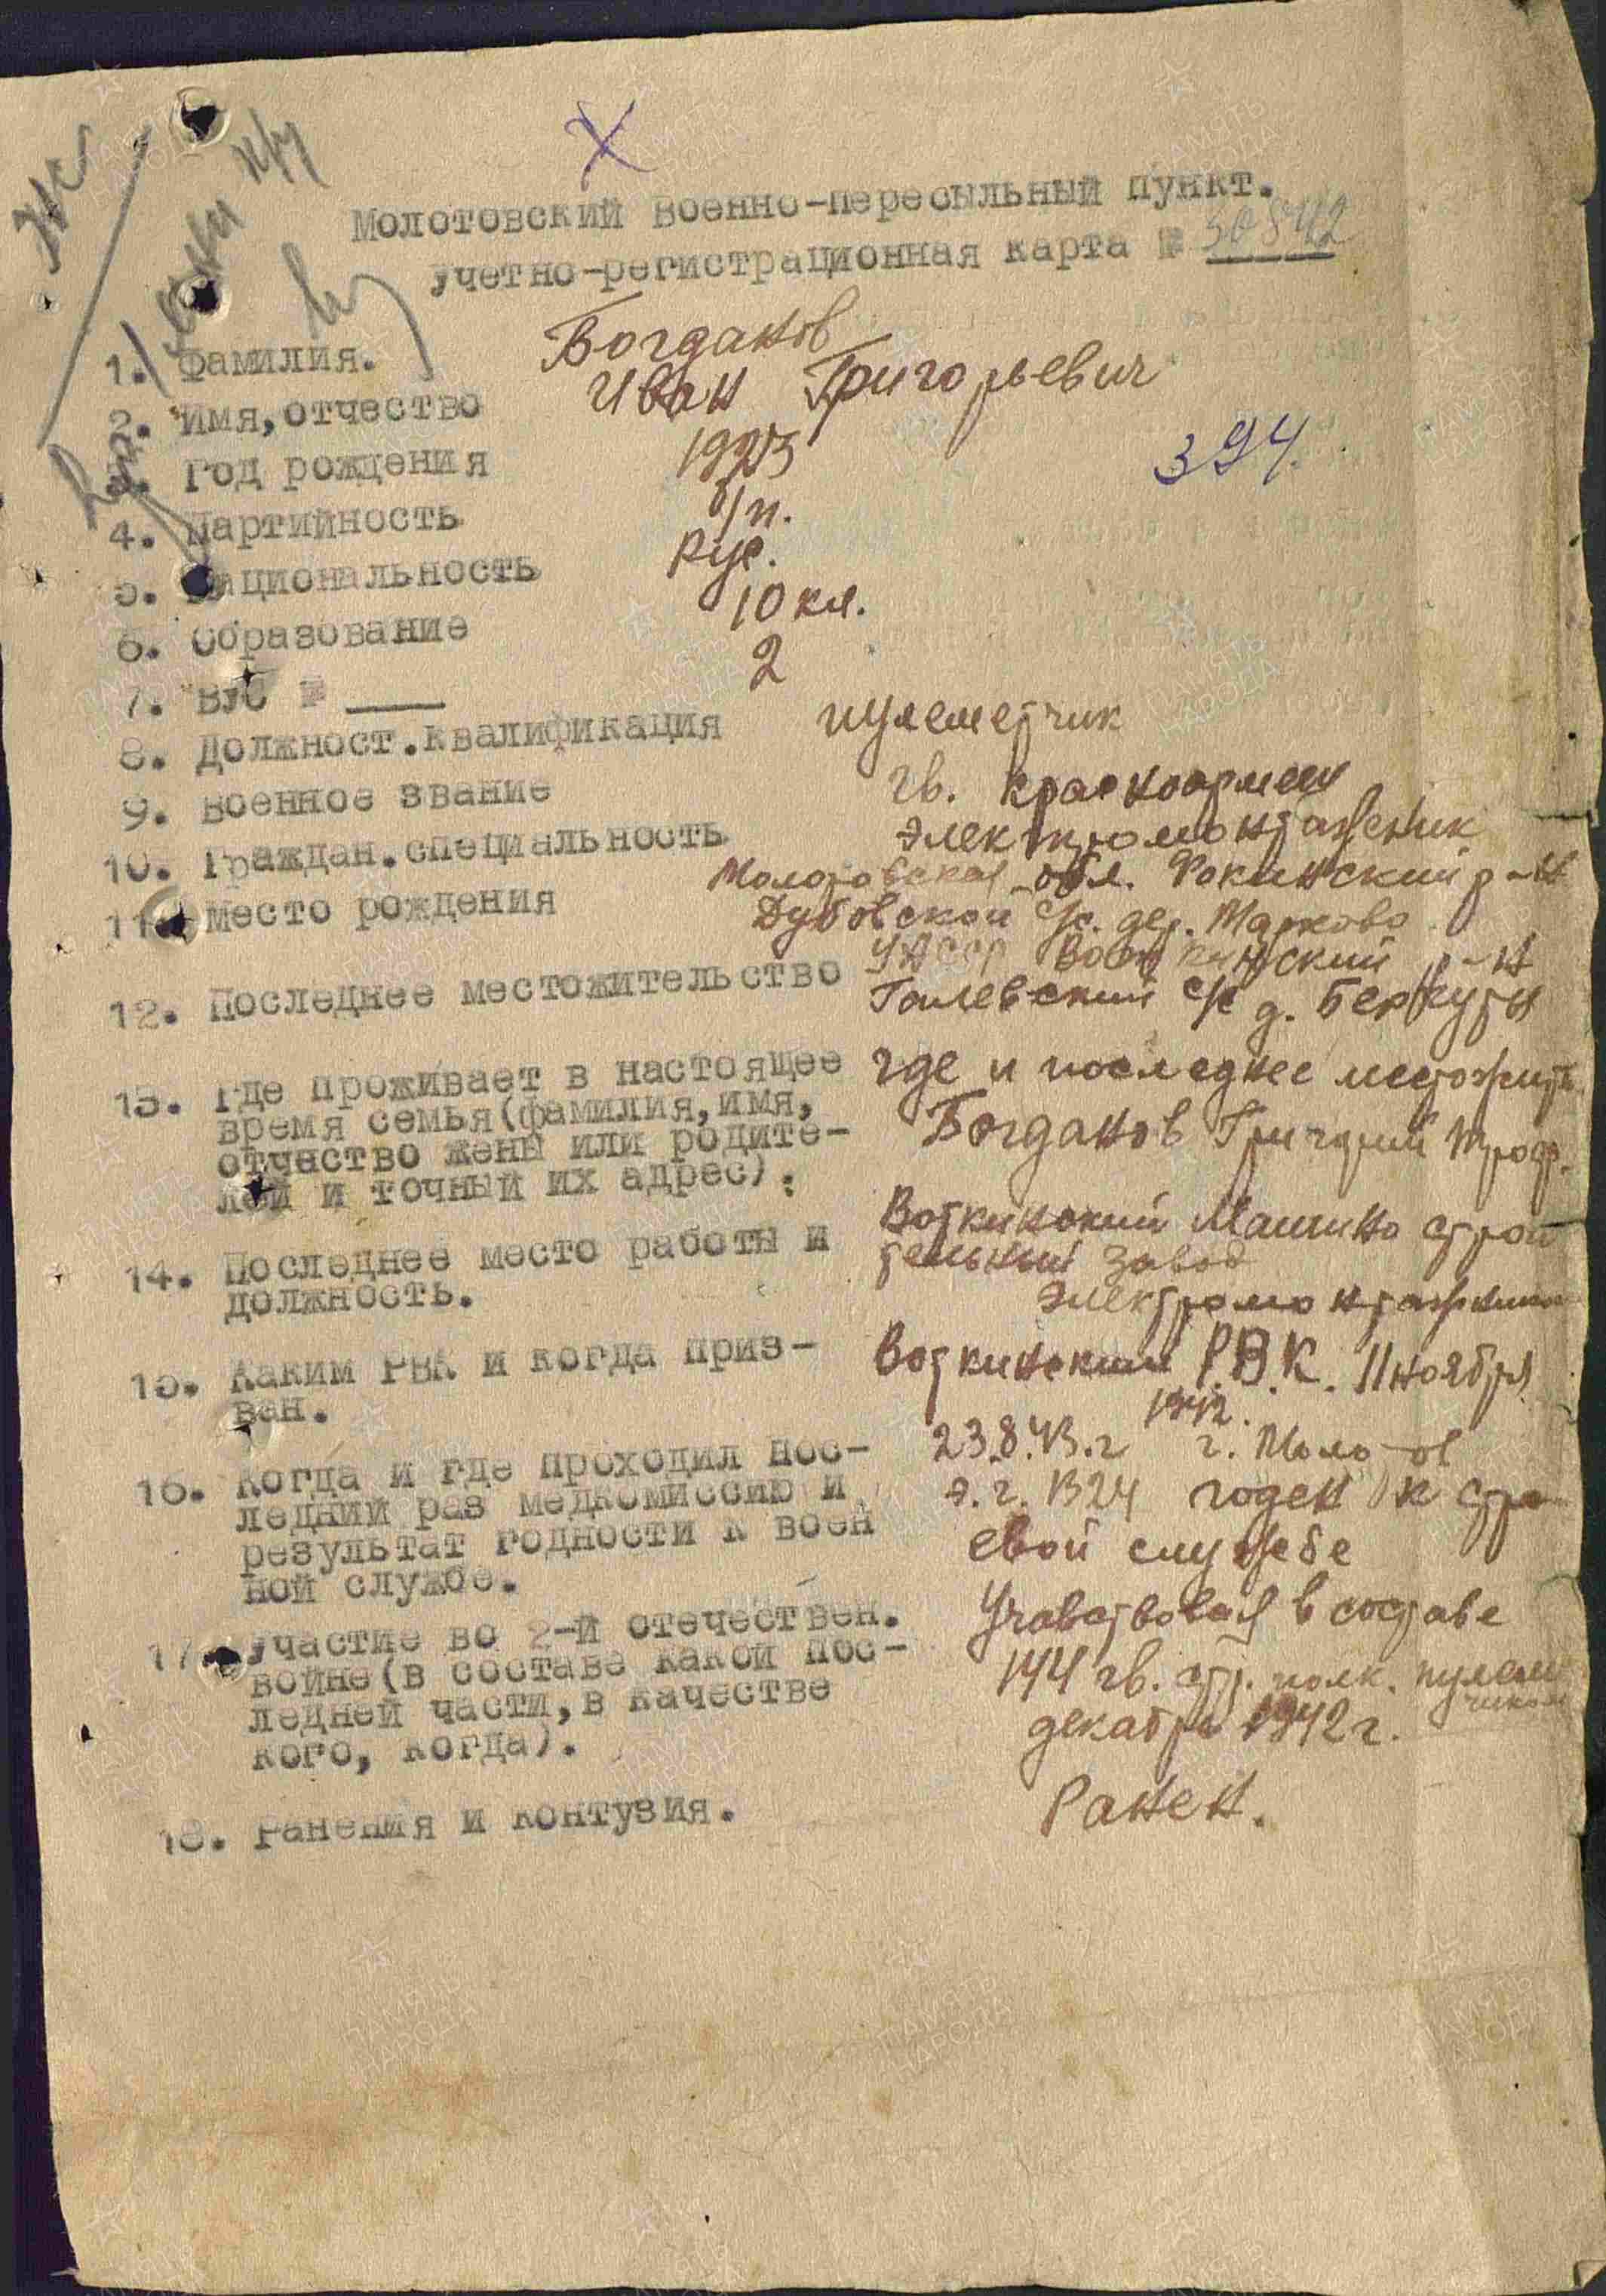 Х
Молотовский военно-пересыльный пункт.
Учетно-регистрационная карта № 30842
1. Фамилия. Богданов
2. Имя, отчество Иван Григорьевич
3. Год рождения 1925
394.
4. Партийность б/п.
5. Национальность Рус.
6. Образование 10 кл.
7. ВУС № ____ 2
8. Должност.квалификация пулеметчик
9. Военное звание гв. красноармеец
10. Граждан.специальность электромонтажник
11. Место рождения Молотовская обл. Фокинский р-н
Дубовской с/с. дер. Марково
12. Последнее местожительство УАССР Воткинский р-н
Галевский с/с д. Беркуты
13. Где проживает в настоящее
время семья(фамилия,имя,
отчество жены или родите-
лей и точный их адрес).
где и последнее местожит.
Богданов Григорий Троф.
14. Последнее место работы и
должность.
Воткинский Машино строи
тельный завод
электромонтажник
15. Каким РВК и когда приз-
ван.
Воткинским Р.В.К. 11 ноября
1942.
16. Когда и где проходил пос-
ледний раз медкомиссию и
результат годности к воен
ной службе.
23.8.43.г г. Молотов
э.г. 1324 годен к стро
евой службе
17. Участие во 2-й отечествен.
войне(в составе какой пос-
ледней части,в качестве
кого, когда).
Учавствовал в составе
144 гв. стр. полк. пулемет
чиком
декабрь 1942 г.
18. Ранения и контузия. Ранен.